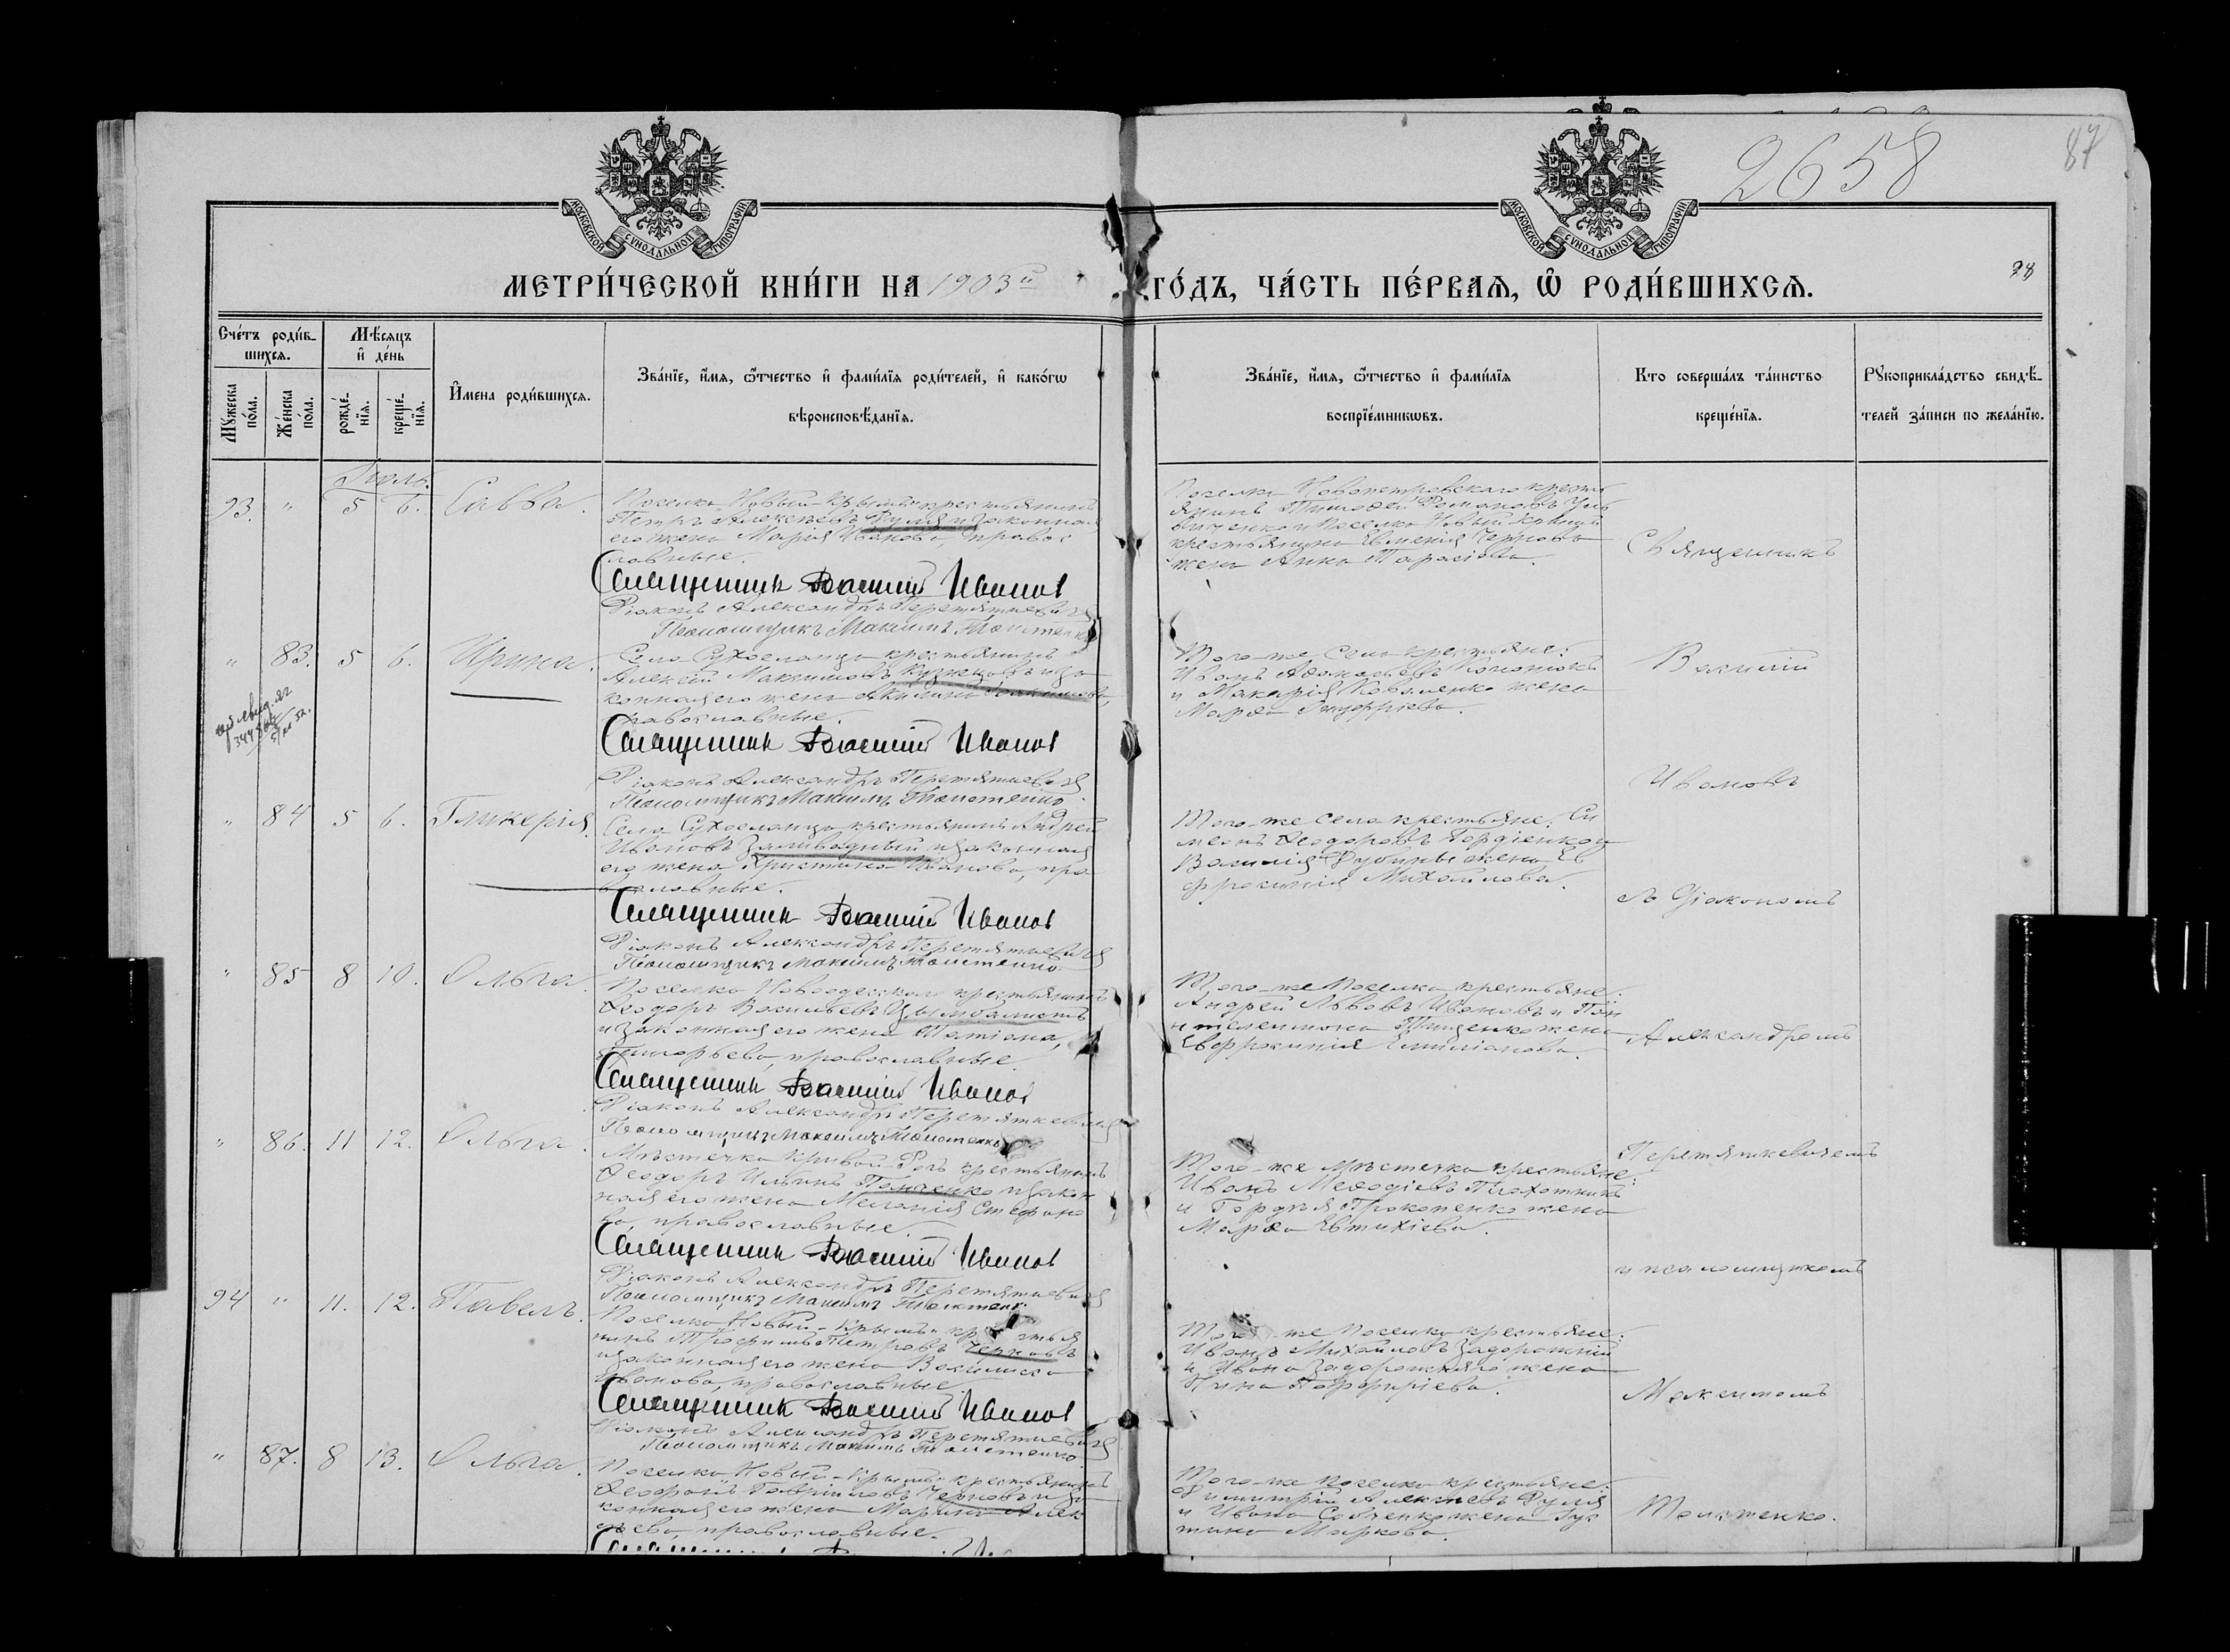 2658
87
МОСКОВСКОЙ СѴНОДАЛЬНОЙ ТИПОГРАФІИ
МОСКОВСКОЙ СѴНОДАЛЬНОЙ ТИПОГРАФІИ
28
МЕТРИ́ЧЕСКОЙ КНИ́ГИ НА 1903й ГО́ДЪ, ЧА́СТЬ ПЕ́РВАѦ, Ѡ РОДИ́ВШИХСѦ.
Сче́тъ роди́в-
шихсѧ.
Мѣ́сѧцъ
и де́нь
Мꙋ́жеска
по́ла.
Же́нска
по́ла.
рожде́-
нїѧ.
креще́-
нїѧ.
И҆мена роди́вшихсѧ.
Зва́нїе, и҆́мѧ, ѻ҆́тчество и҆ фами́лїѧ роди́телей, и҆ како́гѡ
вѣроисповѣ́данїѧ.
Зва́нїе, и҆́мѧ, ѻ҆́тчество и҆ фами́лїѧ
воспрїе́мникѡвъ.
Кто соверша́лъ та́инство
креще́нїѧ.
Рꙋкоприкла́дство свидѣ́-
телей за́писи по жела́нїю.
Іюль.
93. " 5 6. Савва.
Поселка „Новый-Крымъ" крестьянинъ
Петръ Алексѣевъ Руля и законная
его жена Марія Иванова, правос
лавные.
Священник Василий Иванов
Діаконъ Александръ Перетяткевичъ
Псаломщикъ Максимъ Толстенко
Поселка Новопетровскаго крестья
янинъ Тимофей Романовъ
и поселка Новый Крымъ
крестьянина Евменія Чернова
жена Анна Тарасіева.
Священникъ
" 83. 5 6. Ирина.
Села Сухоеланца крестьянинъ
Алексій Максимовъ Кузнецовъ и за
конная его жена Акилина
православные.
Священник Василий Иванов
Діаконъ Александръ Перетяткевичъ
Псаломщикъ Максимъ Толстенко
Того-же села крестьяне:
Иванъ
и Макарія Коваленко жена
Марѳа Онуфріева.
Василій
Ивановъ
" 84 5 6. Гликерія.
Села Сухоеланца крестьянинъ Андрей
Ивановъ Заливадный и законная
его жена Христина Иванова, пра
вославные.
Священник Василий Иванов
Діаконъ Александръ Перетяткевичъ
Псаломщикъ Максимъ Толстенко
Того-же села крестьяне: Си
меонъ Ѳеодоровъ Гордіенко и
Василія Дубины жена Ев
фросинія Михайлова.
съ Діакономъ
" 85 8 10. Ольга.
Поселка Новоодесскаго крестьянинъ
Ѳеодоръ Васильевъ Цымбалистъ
и законная его жена Татіана
Григорьева, православные.
Священник Василий Иванов
Діаконъ Александръ Перетяткевичъ
Псаломщикъ Максимъ Толстенко
Того-же поселка крестьяне:
Андрей Львовъ Ивановъ и Пан
телеимона Тищенко жена
Евфросинія Емиліанова.
Александромъ
" 86. 11 12. Ольга.
Мѣстечка Кривой-Рогъ крестьянинъ
Ѳеодоръ Ильинъ Панченко и закон
ная его жена Меланія Стефано
ва, православные.
Священник Василий Иванов
Діаконъ Александръ Перетяткевичъ
Псаломщикъ Максимъ Толстенко
Того-же мѣстечка крестьяне:
Иванъ Меѳодіевъ Плохотникъ
и Гордѣя Прокопенко жена
Марѳа Евтихіева.
Перетяткевичемъ
и псаломщикомъ
94 " 11. 12. Павелъ.
Поселка „Новый-Крымъ" крестья
нинъ Трофимъ Петровъ Черновъ
и законная его жена Василиса
Иванова, православные.
Священник Василий Иванов
Діаконъ Александръ Перетяткевичъ
Псаломщикъ Максимъ Толстенко
Того-же поселка крестьяне:
Иванъ Михайловъ Задорожній
и Ивана Задорожняго жена
Порфиріева.
Максимомъ
" 87. 8 13. Ольга.
Поселка „Новый-Крымъ" крестьянинъ
Гавріиловъ Черновъ и за
конная его жена Марина Алек
сѣева, православные.
Того-же поселка крестьяне:
Димитрій Алексѣевъ Руля
и Ивана жена Іус
тина Маркова.
Толстенко.